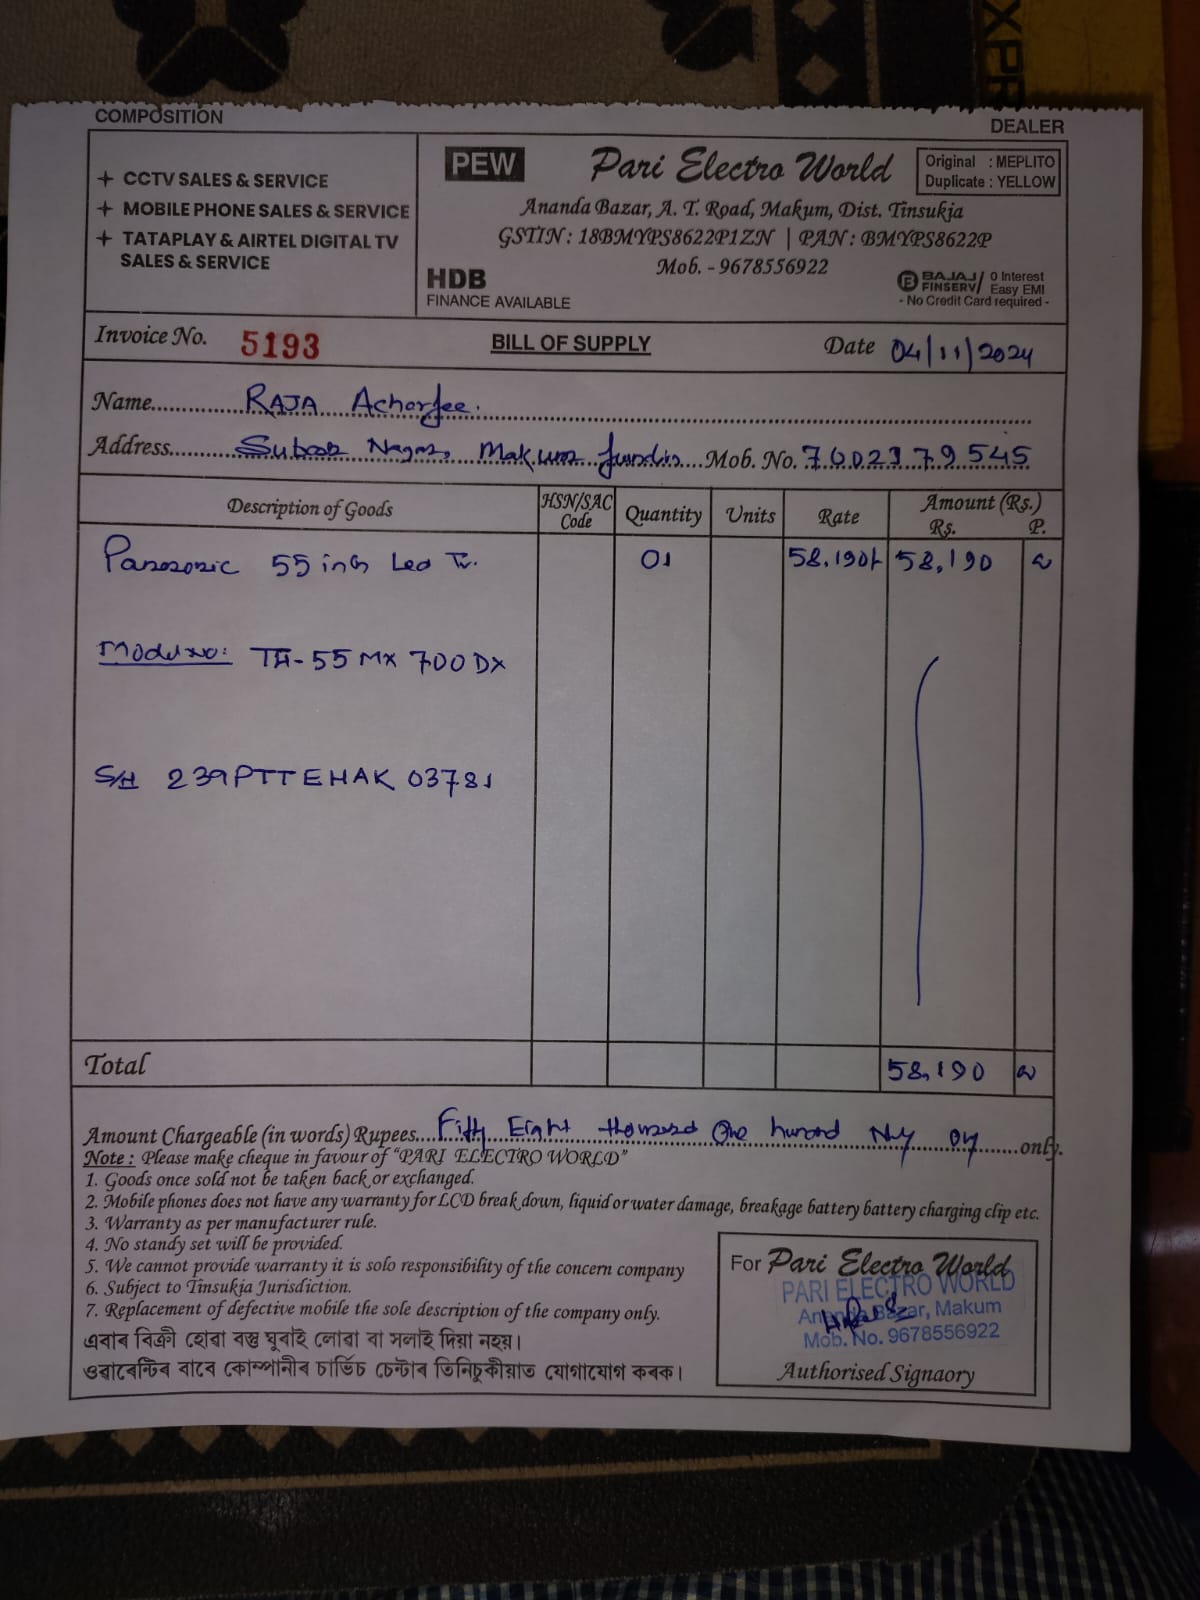 COMPOSITION
DEALER
+ CCTV SALES & SERVICE
+ MOBILE PHONE SALES & SERVICE
+ TATAPLAY & AIRTEL DIGITAL TV
SALES & SERVICE
PEW
Pari Electro World
Original : MEPLITO
Duplicate : YELLOW
Ananda Bazar, A. T. Road, Makum, Dist. Tinsukia
GSTIN : 18BMYPS8622P1ZN | PAN : BMYPS8622P
Mob. - 9678556922
HDB
FINANCE AVAILABLE
B BAJAJ FINSERV / 0 Interest Easy EMI
- No Credit Card required -
Invoice No. 5193
BILL OF SUPPLY
Date 04/11/2024
Name RAJA Acharjee.
Address Nagar, Makum Mob. No. 7002379545
Description of Goods HSN/SAC Code Quantity Units Rate Amount (Rs.) Rs. P.
Panasonic 55 inch Led Tv. 01 58,190/- 58,190
Model No: TH-55 MX 700 DX
239PTTEHAK 03781
Total 58,190
Amount Chargeable (in words) Rupees Fifty Eight thousand One hundred only.
Note : Please make cheque in favour of "PARI ELECTRO WORLD"
1. Goods once sold not be taken back or exchanged.
2. Mobile phones does not have any warranty for LCD break down, liquid or water damage, breakage battery battery charging clip etc.
3. Warranty as per manufacturer rule.
4. No standy set will be provided.
5. We cannot provide warranty it is solo responsibility of the concern company
6. Subject to Tinsukia Jurisdiction.
7. Replacement of defective mobile the sole description of the company only.
এবাৰ বিক্ৰী হোৱা বস্তু ঘুৰাই লোৱা বা সলাই দিয়া নহয়।
ওৱাৰেন্টিৰ বাবে কোম্পানীৰ চাৰ্ভিচ চেন্টাৰ তিনিচুকীয়াত যোগাযোগ কৰক।
For Pari Electro World
PARI ELECTRO WORLD
Ananda Bazar, Makum
Mob. No. 9678556922
Authorised Signaory
XPR